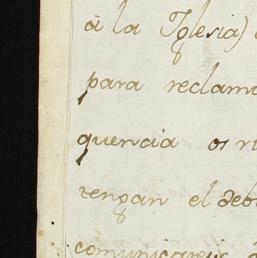 à la Yglesia)
para reclam
quencia os
tengan el deb
comunicareis